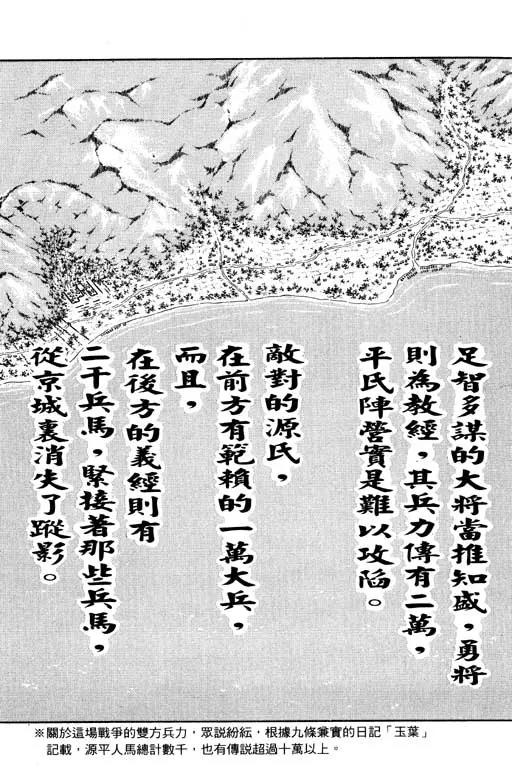 足智多謀的大將當推知盛，勇將
則為教經，其兵力傳有二萬，
平氏陣營實是難以攻陷。
敵對的源氏，
在前方有範賴的一萬大兵，
而且，
在後方的義經則有
二千兵馬，緊接著那些兵馬，
從京城裏消失了蹤影。
※關於這場戰爭的雙方兵力，眾說紛紜，根據九條兼實的日記「玉葉」
記載，源平人馬總計數千，也有傳說超過十萬以上。